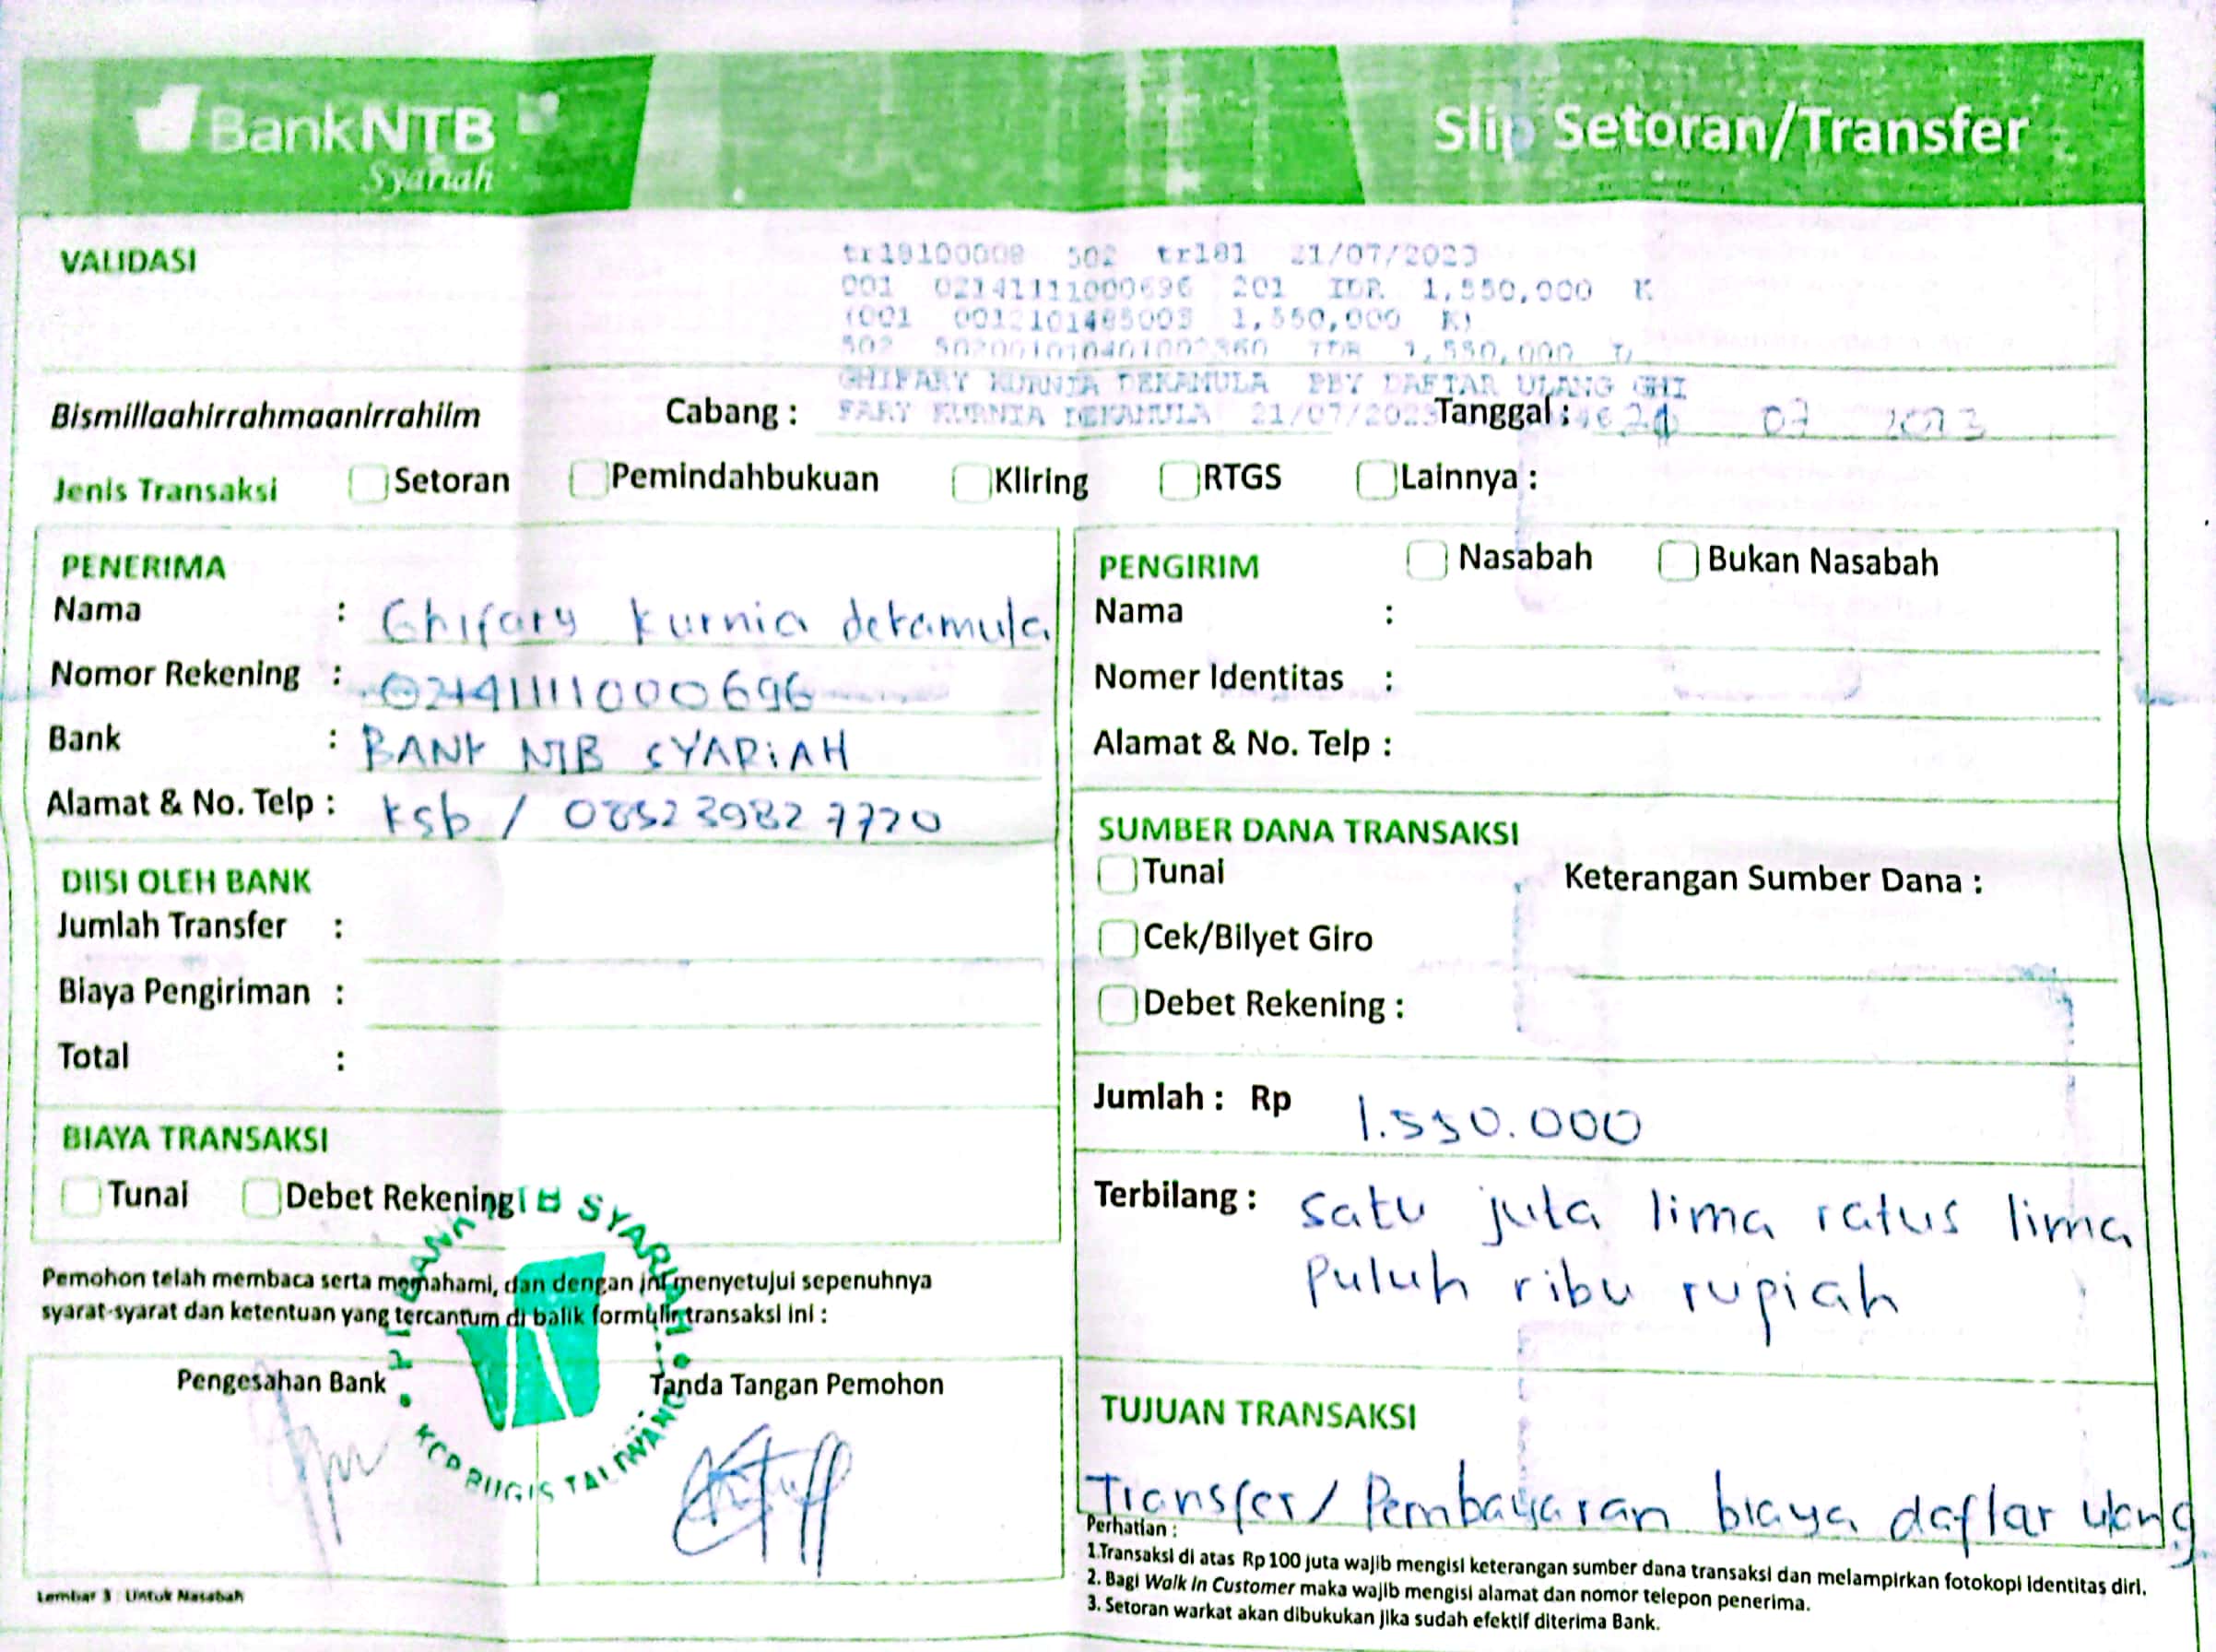 BankNTB
Syariah
Slip Setoran/Transfer
VALIDASI
tr18100008 502 tr181 21/07/2023
001 02141111000696 201 IDR 1,550,000 K
(001 0012101485003 1,550,000 K)
502 IDR 1,550,000 D
GHIFARY KURNIA DEKAMULA PBY DAFTAR ULANG GHI
FARY KURNIA DEKAMULA 21/07/2023
Bismillaahirrahmaanirrahiim Cabang : Tanggal : 21 07 2023
Jenis Transaksi Setoran Pemindahbukuan Kliring RTGS Lainnya :
PENERIMA
Nama : Ghifary kurnia dekamula
Nomor Rekening : 02141111000696
Bank : BANK NTB SYARiAH
Alamat & No. Telp : ksb / 085239827720
DIISI OLEH BANK
Jumlah Transfer :
Biaya Pengiriman :
Total :
BIAYA TRANSAKSI
Tunai Debet Rekening
Pemohon telah membaca serta memahami, dan dengan ini menyetujui sepenuhnya
syarat-syarat dan ketentuan yang tercantum di balik formulir transaksi ini :
Pengesahan Bank Tanda Tangan Pemohon
PT. BANK NTB SYARIAH
KCP BUGIS TALIWANG
Lembar 3 : Untuk Nasabah
PENGIRIM Nasabah Bukan Nasabah
Nama :
Nomer Identitas :
Alamat & No. Telp :
SUMBER DANA TRANSAKSI
Tunai Keterangan Sumber Dana :
Cek/Bilyet Giro
Debet Rekening :
Jumlah : Rp 1.550.000
Terbilang : Satu juta lima ratus lima
Puluh ribu rupiah
TUJUAN TRANSAKSI
Transfer / Pembayaran biaya daftar ulang
Perhatian :
1.Transaksi di atas Rp 100 juta wajib mengisi keterangan sumber dana transaksi dan melampirkan fotokopi identitas diri.
2. Bagi Walk In Customer maka wajib mengisi alamat dan nomor telepon penerima.
3. Setoran warkat akan dibukukan jika sudah efektif diterima Bank.